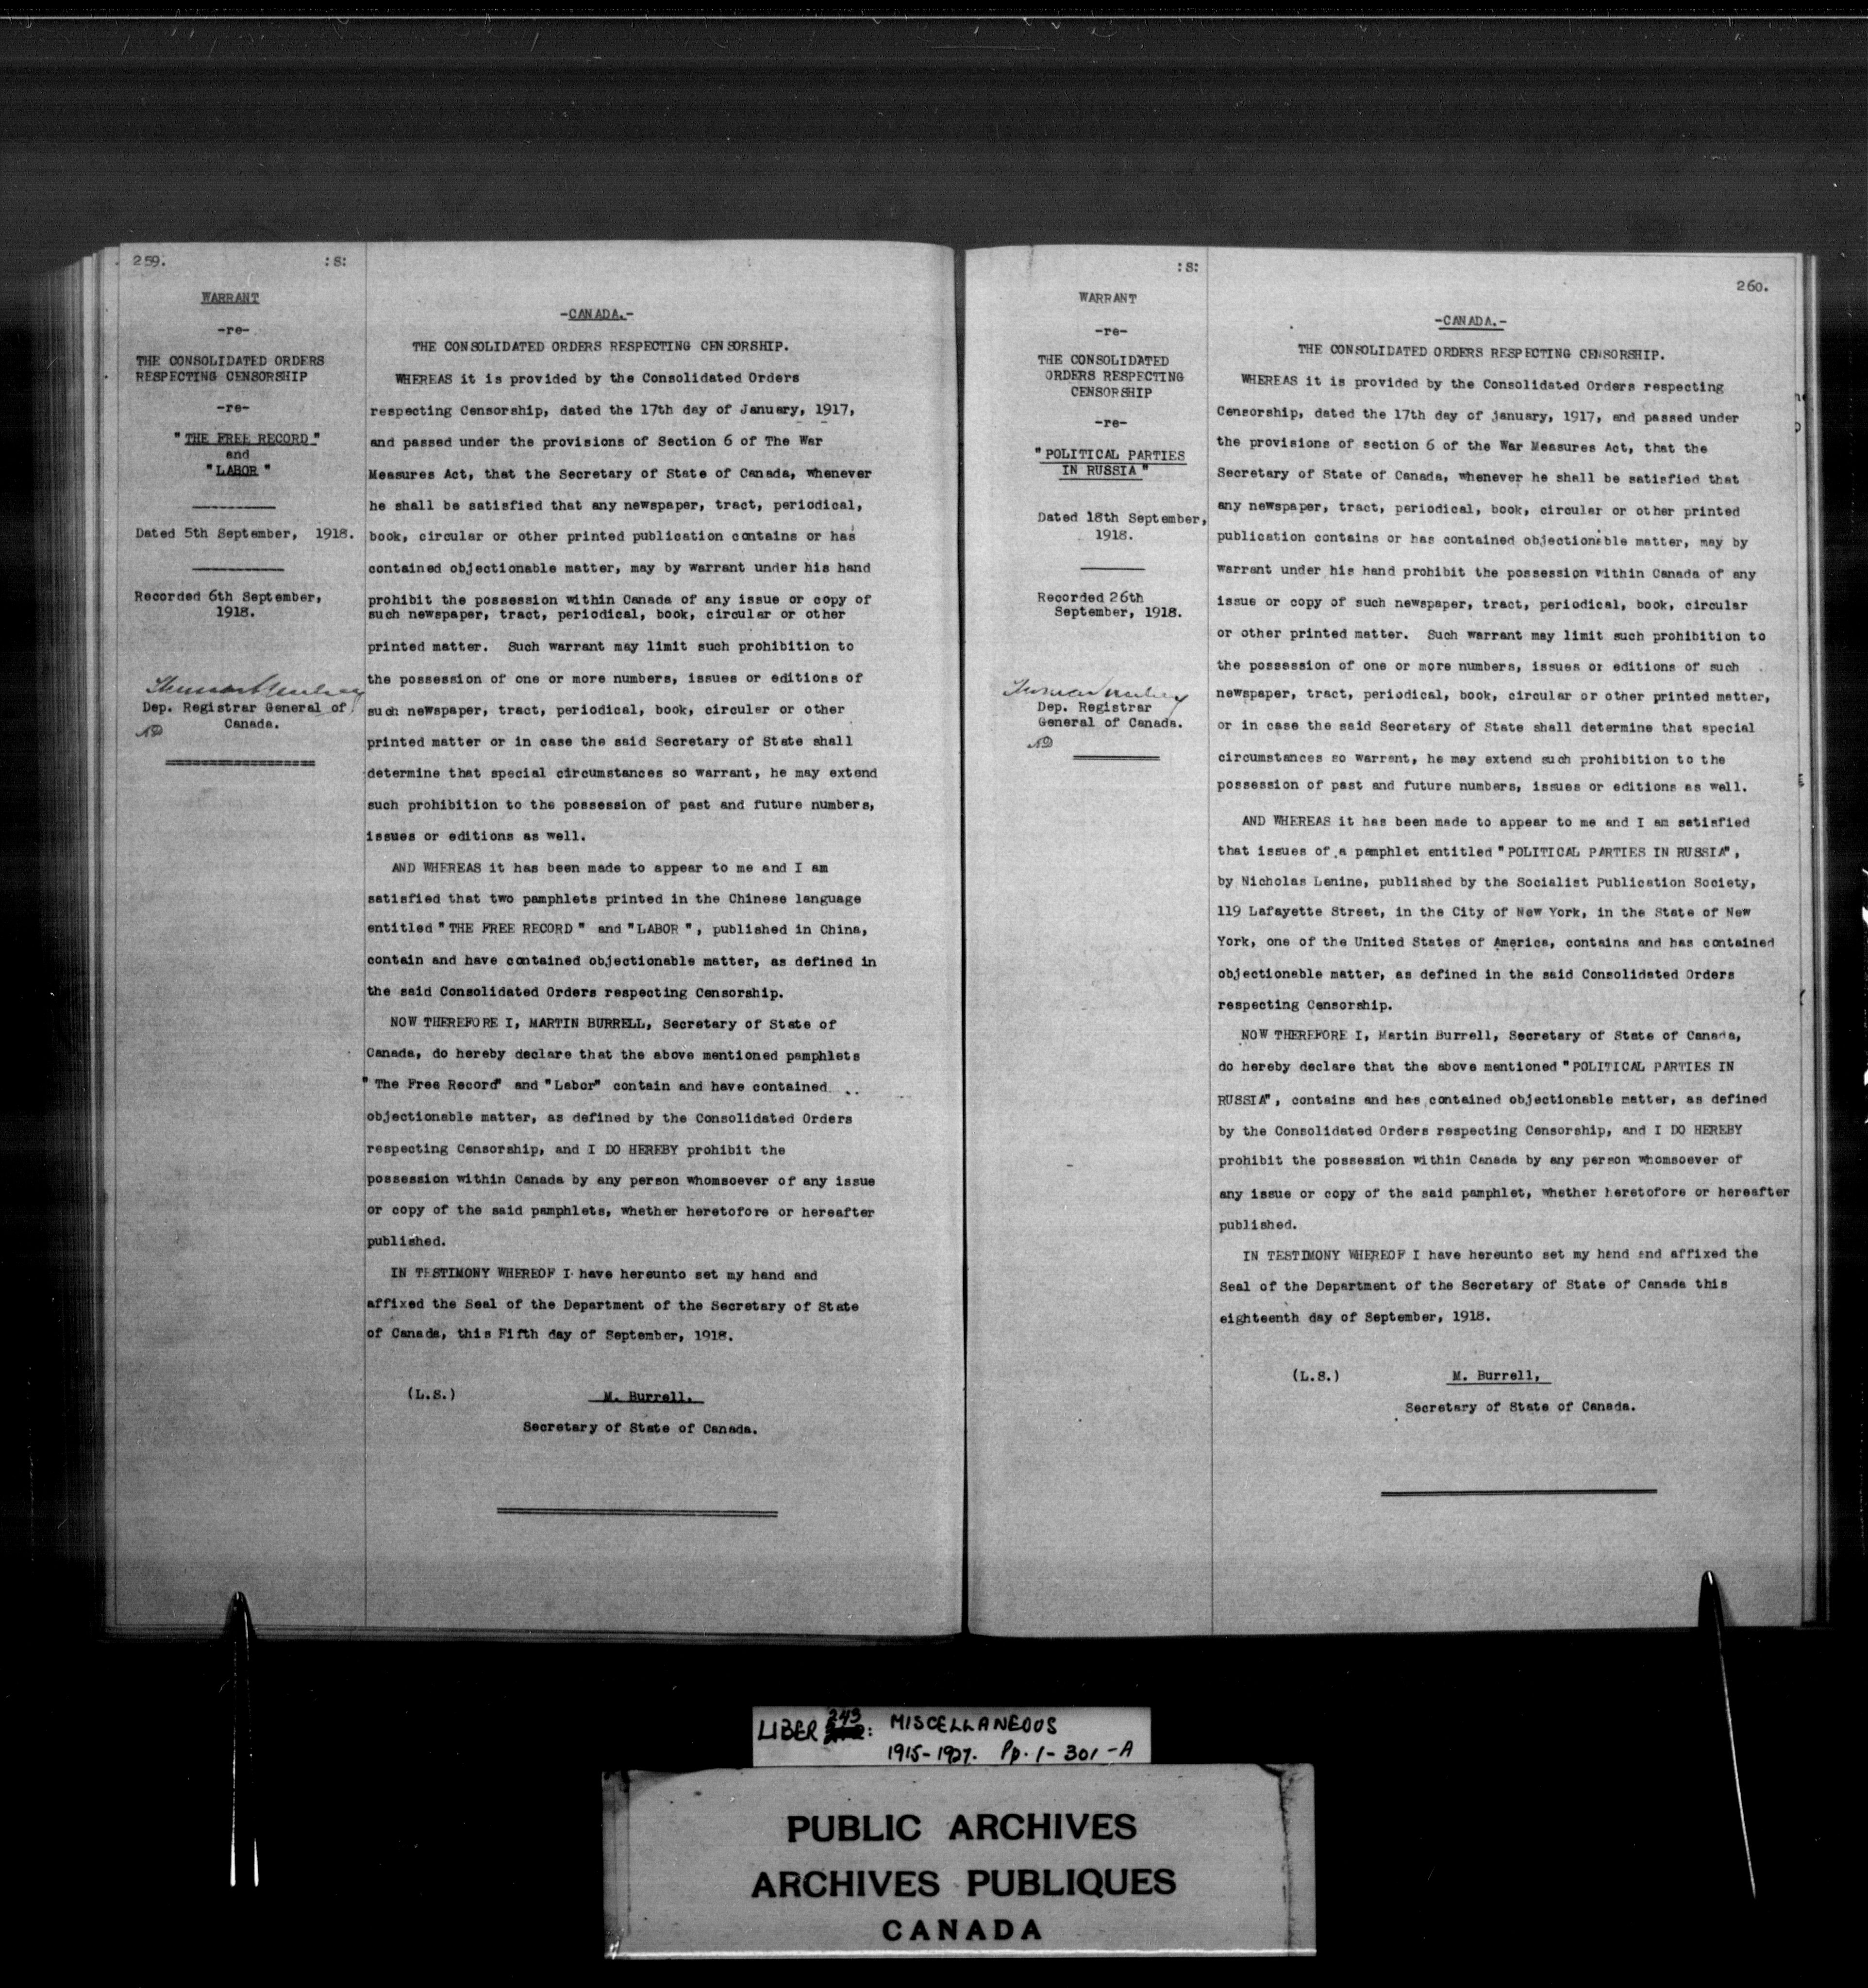 259. :S:
WARRANT
-re-
THE CONSOLIDATED ORDERS
RESPECTING CENSORSHIP
-re-
"THE FREE RECORD"
and
"LABOR"
Dated 5th September, 1918.
Recorded 6th September,
1918.
Dep. Registrar General of
Canada.
-CANADA.-
THE CONSOLIDATED ORDERS RESPECTING CENSORSHIP.
WHEREAS it is provided by the Consolidated Orders
respecting Censorship, dated the 17th day of January, 1917,
and passed under the provisions of Section 6 of The War
Measures Act, that the Secretary of State of Canada, whenever
he shall be satisfied that any newspaper, tract, periodical,
book, circular or other printed publication contains or has
contained objectionable matter, may by warrant under his hand
prohibit the possession within Canada of any issue or copy of
such newspaper, tract, periodical, book, circular or other
printed matter. Such warrant may limit such prohibition to
the possession of one or more numbers, issues or editions of
such newspaper, tract, periodical, book, circular or other
printed matter or in case the said Secretary of State shall
determine that special circumstances so warrant, he may extend
such prohibition to the possession of past and future numbers,
issues or editions as well.
AND WHEREAS it has been made to appear to me and I am
satisfied that two pamphlets printed in the Chinese language
entitled "THE FREE RECORD" and "LABOR", published in China,
contain and have contained objectionable matter, as defined in
the said Consolidated Orders respecting Censorship.
NOW THEREFORE I, MARTIN BURRELL, Secretary of State of
Canada, do hereby declare that the above mentioned pamphlets
"The Free Record" and "Labor" contain and have contained
objectionable matter, as defined by the Consolidated Orders
respecting Censorship, and I DO HEREBY prohibit the
possession within Canada by any person whomsoever of any issue
or copy of the said pamphlets, whether heretofore or hereafter
published.
IN TESTIMONY WHEREOF I have hereunto set my hand and
affixed the Seal of the Department of the Secretary of State
of Canada, this Fifth day of September, 1918.
(L.S.) M. Burrell.
Secretary of State of Canada.
:S:
WARRANT
-re-
THE CONSOLIDATED
ORDERS RESPECTING
CENSORSHIP
-re-
"POLITICAL PARTIES
IN RUSSIA"
Dated 18th September,
1918.
Recorded 26th
September, 1918.
Dep. Registrar
General of Canada.
260.
-CANADA.-
THE CONSOLIDATED ORDERS RESPECTING CENSORSHIP.
WHEREAS it is provided by the Consolidated Orders respecting
Censorship, dated the 17th day of january, 1917, and passed under
the provisions of section 6 of the War Measures Act, that the
Secretary of State of Canada, whenever he shall be satisfied that
any newspaper, tract, periodical, book, circular or other printed
publication contains or has contained objectionable matter, may by
warrant under his hand prohibit the possession within Canada of any
issue or copy of such newspaper, tract, periodical, book, circular
or other printed matter. Such warrant may limit such prohibition to
the possession of one or more numbers, issues or editions of such
newspaper, tract, periodical, book, circular or other printed matter,
or in case the said Secretary of State shall determine that special
circumstances so warrant, he may extend such prohibition to the
possession of past and future numbers, issues or editions as well.
AND WHEREAS it has been made to appear to me and I am satisfied
that issues of a pamphlet entitled "POLITICAL PARTIES IN RUSSIA",
by Nicholas Lenine, published by the Socialist Publication Society,
119 Lafayette Street, in the City of New York, in the State of New
York, one of the United States of America, contains and has contained
objectionable matter, as defined in the said Consolidated Orders
respecting Censorship.
NOW THEREFORE I, Martin Burrell, Secretary of State of Canada,
do hereby declare that the above mentioned "POLITICAL PARTIES IN
RUSSIA", contains and has contained objectionable matter, as defined
by the Consolidated Orders respecting Censorship, and I DO HEREBY
prohibit the possession within Canada by any person whomsoever of
any issue or copy of the said pamphlet, whether heretofore or hereafter
published.
IN TESTIMONY WHEREOF I have hereunto set my hand and affixed the
Seal of the Department of the Secretary of State of Canada this
eighteenth day of September, 1918.
(L.S.) M. Burrell,
Secretary of State of Canada.
LIBER 243: MISCELLANEOUS
1915-1927. Pp. 1-301-A
PUBLIC ARCHIVES
ARCHIVES PUBLIQUES
CANADA